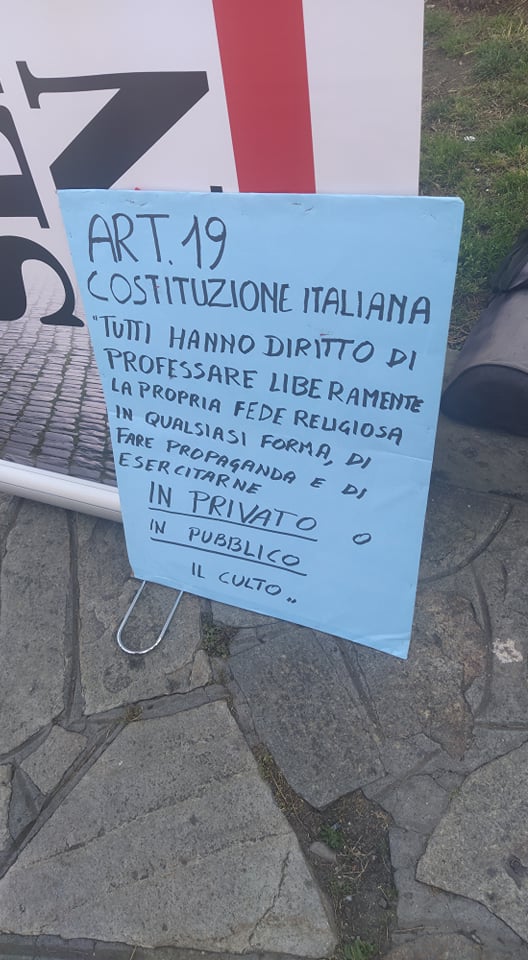 ART. 19
COSTITUZIONE ITALIANA
"TUTTI HANNO DIRITTO DI
PROFESSARE LIBERAMENTE
LA PROPRIA FEDE RELIGIOSA
IN QUALSIASI FORMA, DI
FARE PROPAGANDA E DI
ESERCITARNE
IN PRIVATO O
IN PUBBLICO
IL CULTO"